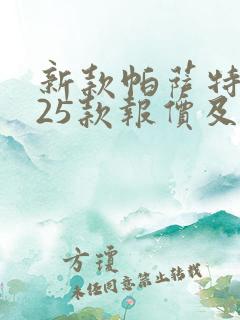 新款帕薩特
25款報價及
方瓊
未经同意禁止转载